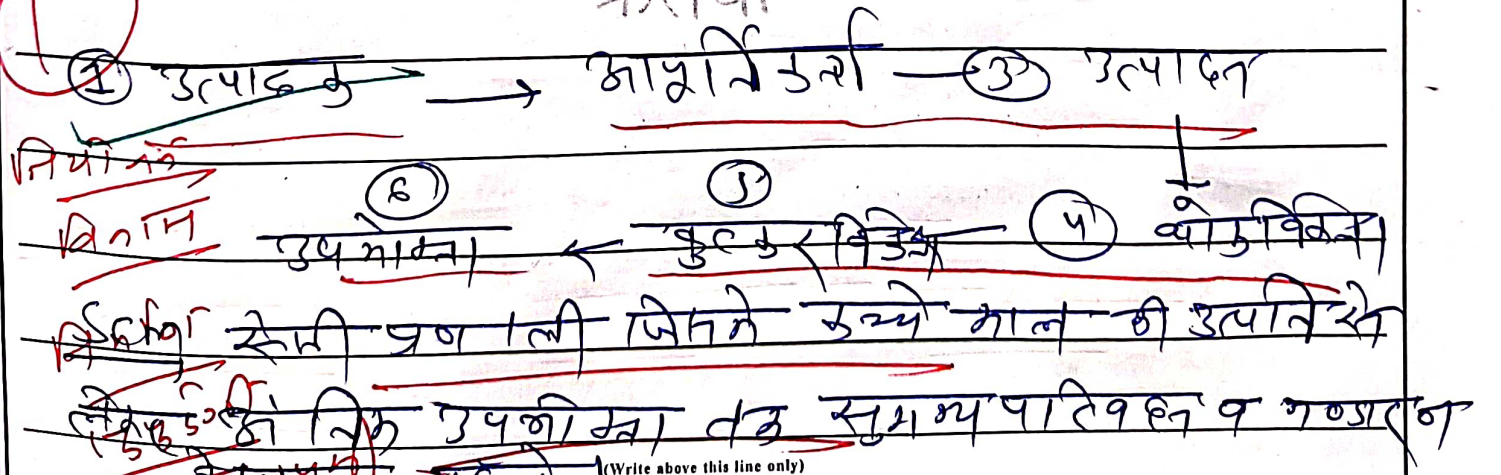 ① उत्पादक → आपूर्तिकर्ता — ③ उत्पादन
नियोजन
⑥ ⑤
उपभोक्ता ← फुटकर विक्रेता ④ थोक विक्रेता
ऐसी प्रणाली जिसमे कच्चे माल की उत्पत्ति से
लेकर अंतिम उपभोक्ता तक सुगम्य परिवहन व भण्डारण
(Write above this line only)